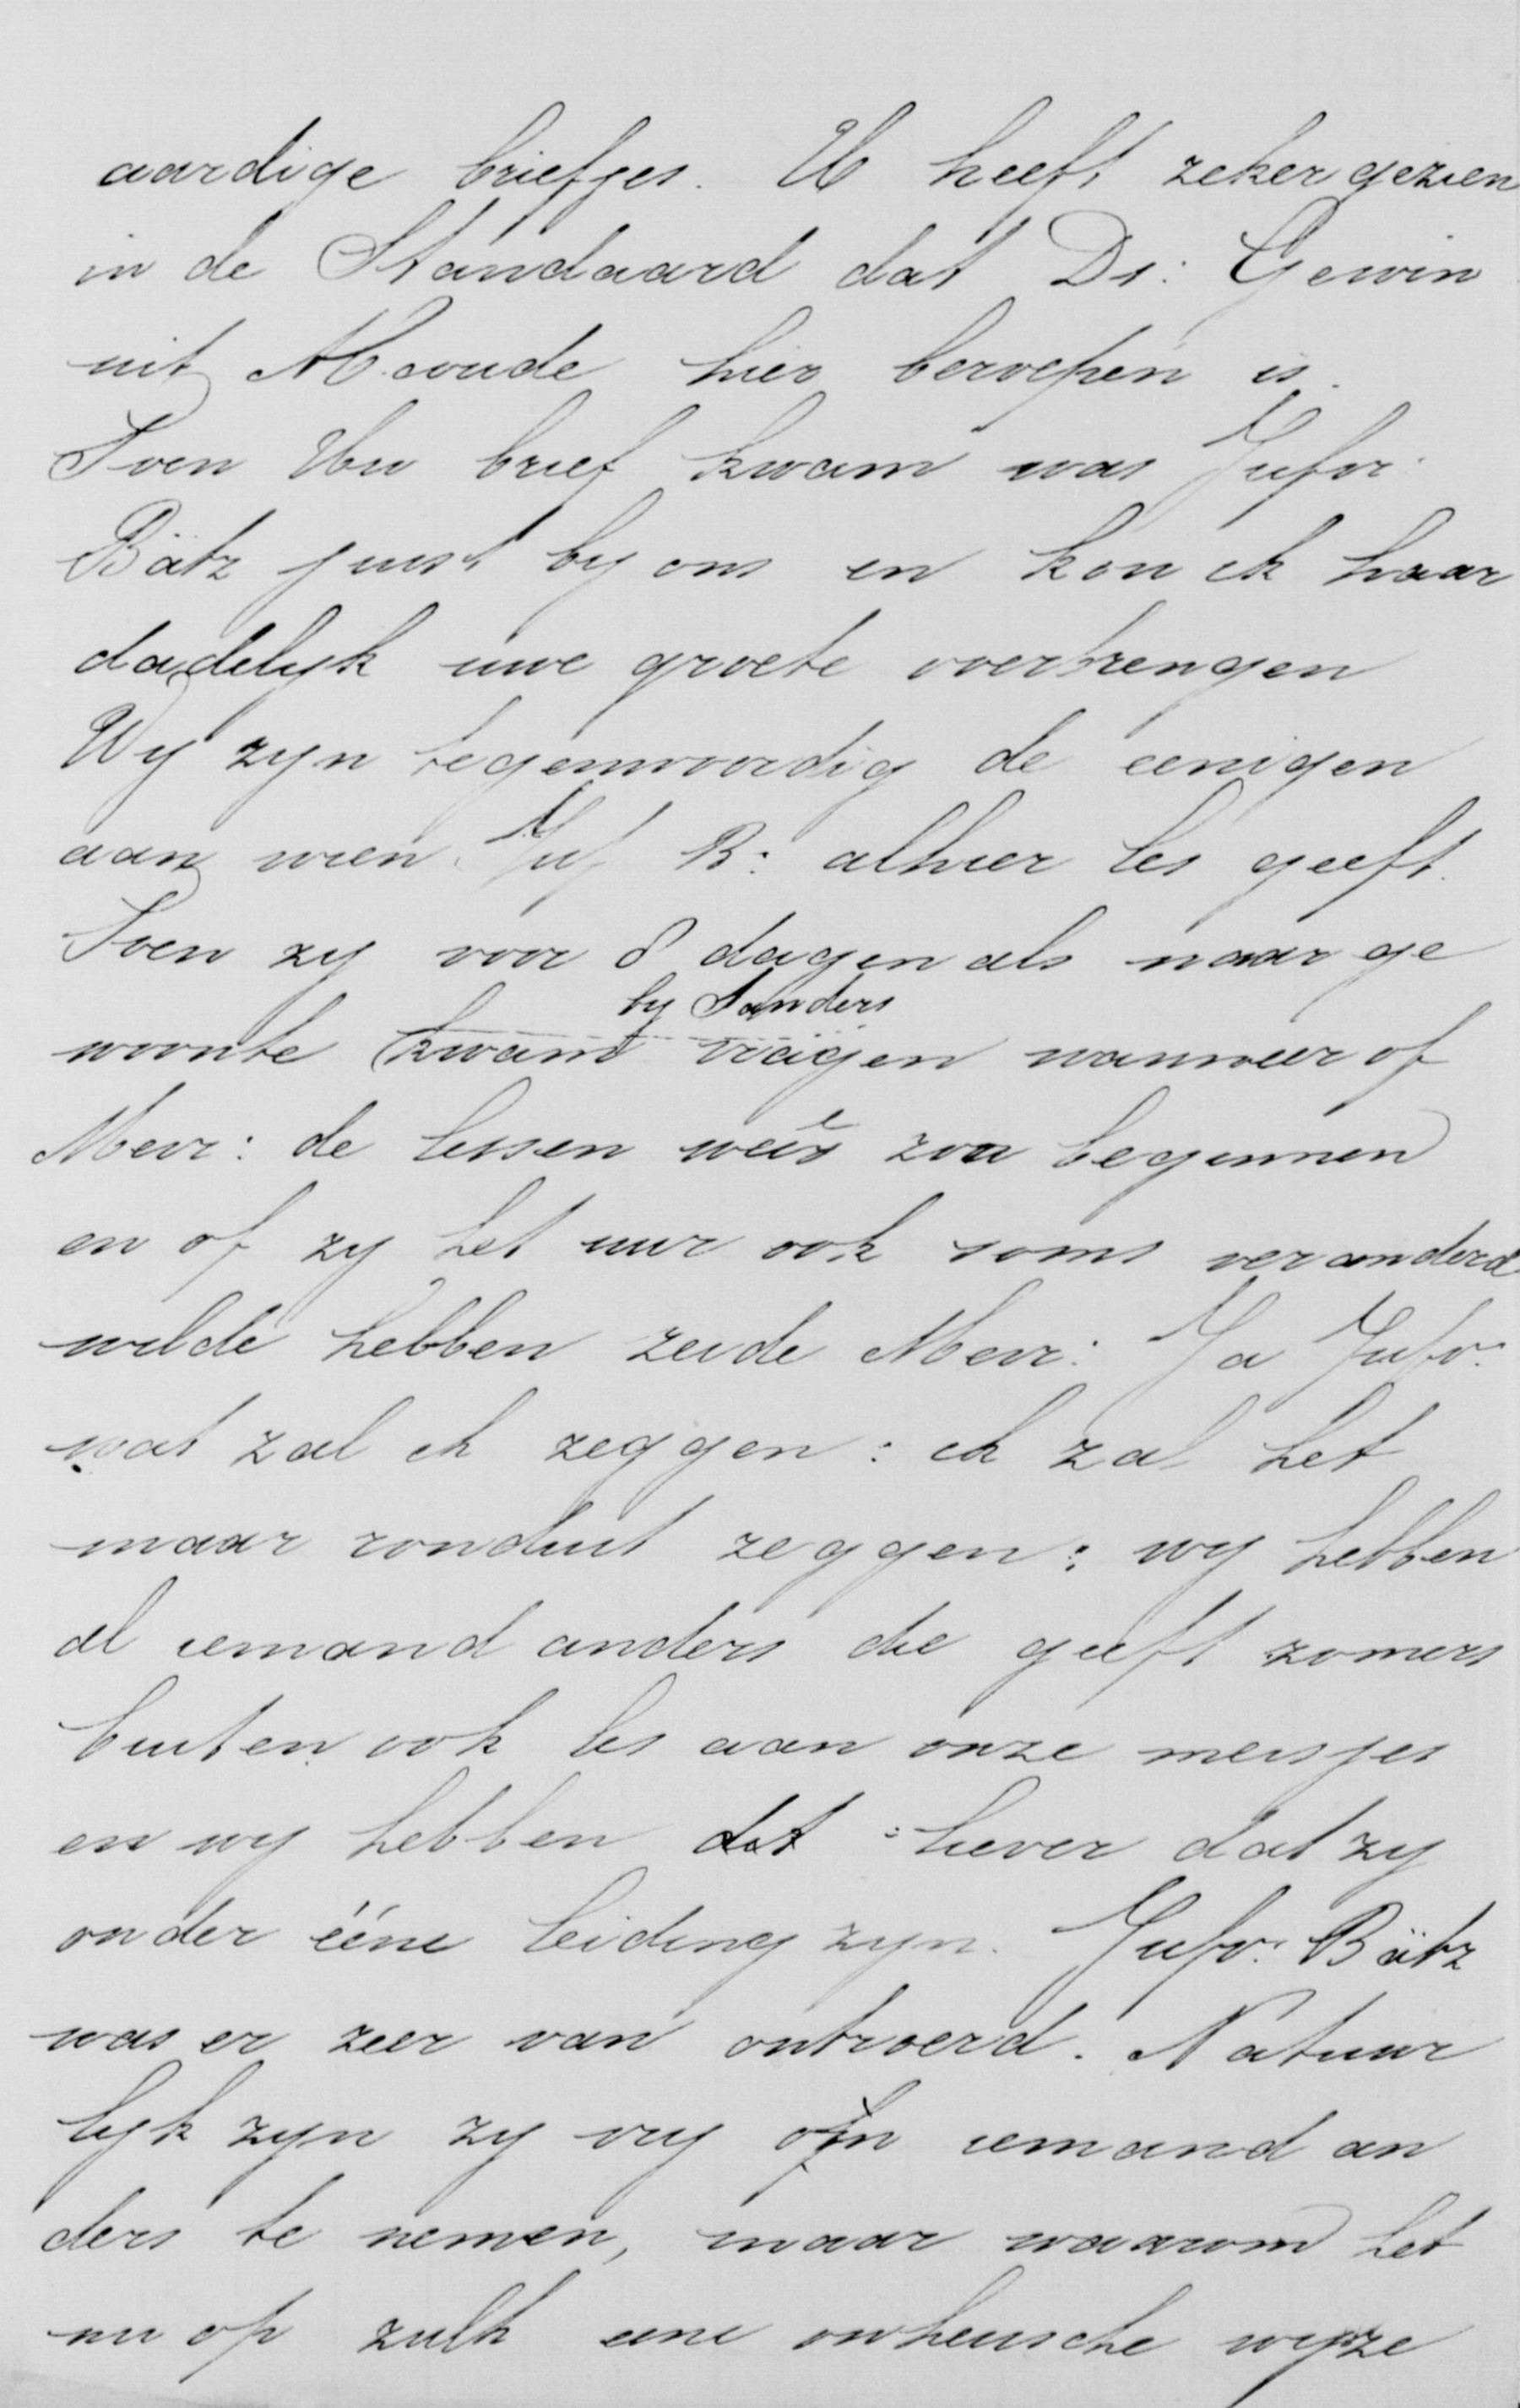 aardige briefjes. U heeft zeker gezien
in de Standaard dat Ds: Gewin
uit M.oude hier beroepen is.
Toen Uw brief kwam was Jufvr.
Bätz juist by ons en kon ik haar
dadelyk uwe groete overbrengen
Wy zyn tegenwoordig de eenigen
aan wien Juf B: alhier les geeft.
Toen zy voor 8 dagen als naar ge
by Sanders
woonte kwam vragen wanneer of
Mevr: de lessen weêr zou beginnen
en of zy het uur ook soms veranderd
wilde hebben zeide Mevr: Ja Jufvr.
wat zal ik zeggen: ik zal het
maar ronduit zeggen: wy hebben
al iemand anders die geeft zomers
buiten ook les aan onze meisjes
en wy hebben dat liever dat zy
onder ééne leiding zyn. Jufvr. Bätz
was er zeer van ontroerd. Natuur
lyk zyn zy vry om iemand an
ders te nemen, maar waarom het
nu op zulk eene onheusche wyze